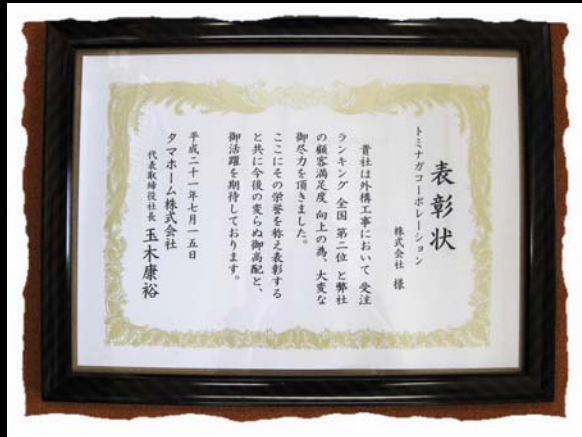 表彰状
トミナガコーポレーション
株式会社 様
貴社は外構工事において 受注
ランキング 全国 第二位 と弊社
の顧客満足度 向上の為、大変な
御尽力を頂きました。
ここにその栄誉を称え表彰する
と共に今後の変らぬ御高配と、
御活躍を期待しております。
平成二十一年七月一五日
タマホーム株式会社
代表取締役社長 玉木康裕